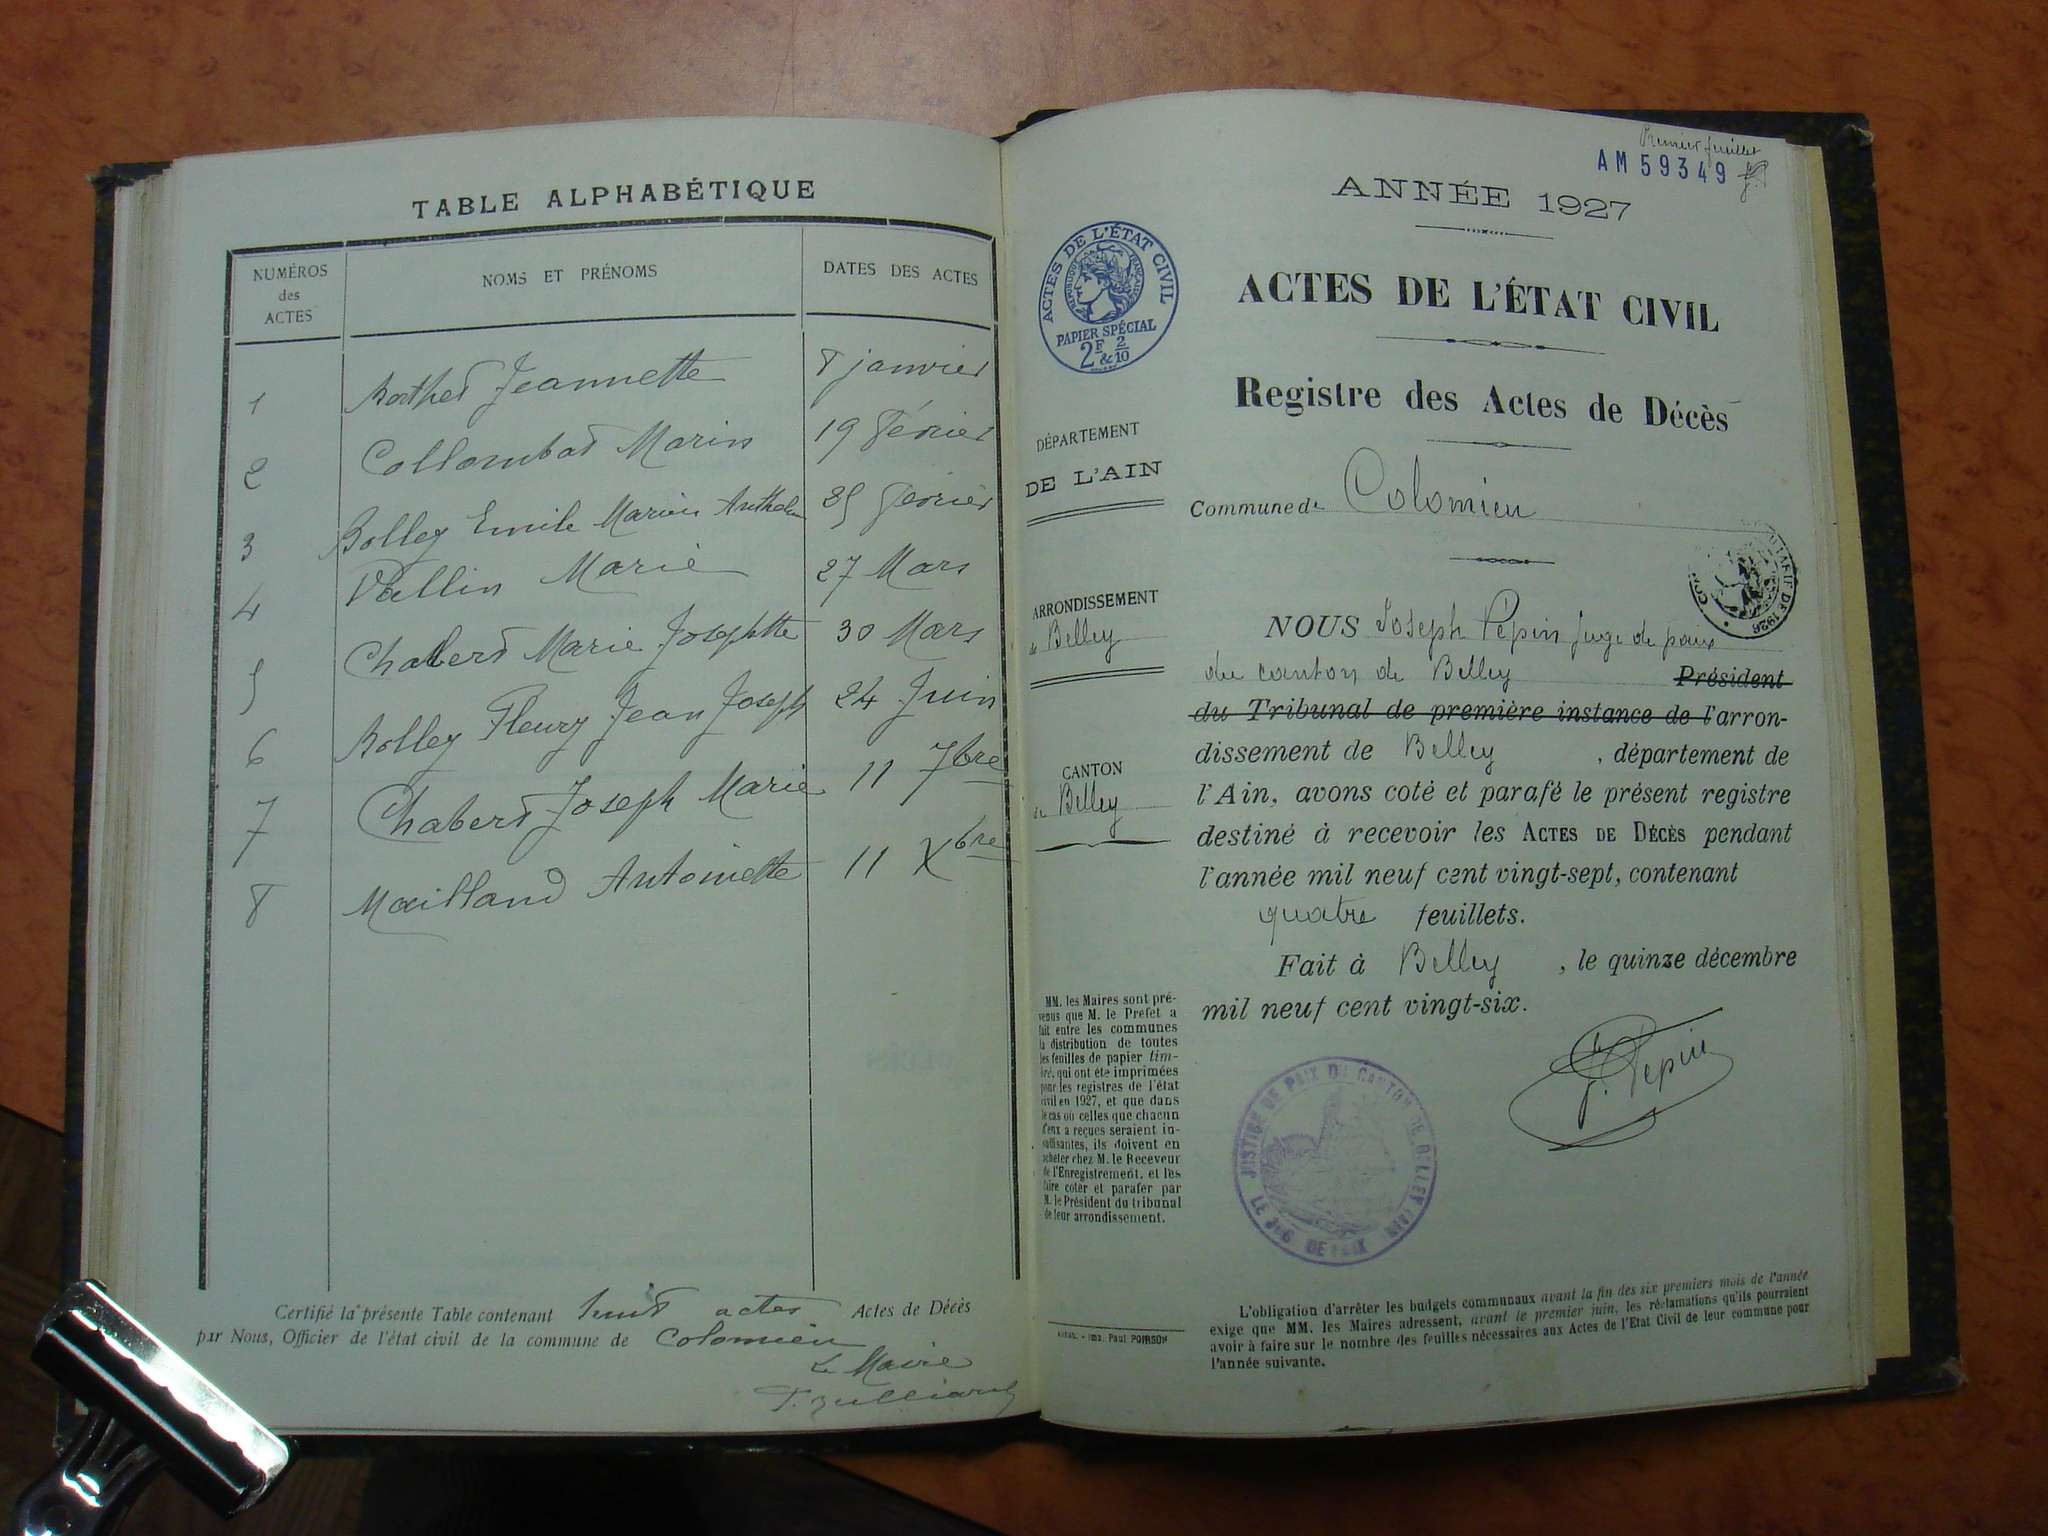 TABLE ALPHABÉTIQUE
NUMÉROS des ACTES NOMS ET PRÉNOMS DATES DES ACTES
1 Berthet Jeannette 8 janvier
2 Collombat Marin 19 Février
3 Bolley Emile Marin Anthelm 25 Février
4 Vallin Marie 27 Mars
5 Chabert Marie Josephtte 30 Mars
6 Bolley Fleury Jean Joseph 24 Juin
7 Chabert Joseph Marie 11 7bre
8 Mailland Antoinette 11 Xbre
Certifié la présente Table contenant huit actes Actes de Décès
par Nous, Officier de l'état civil de la commune de Colomieu
Le Maire
Premier feuillet
AM 59349
ANNÉE 1927
ACTES DE L'ÉTAT CIVIL
RÉPUBLIQUE FRANÇAISE
PAPIER SPÉCIAL
2F & 2/10
ACTES DE L'ÉTAT CIVIL
Registre des Actes de Décès
DÉPARTEMENT
DE L'AIN
Commune de Colomieu
TARIF DE 1926
ARRONDISSEMENT
de Belley
CANTON
de Belley
NOUS Joseph Pépin juge de paix
du canton de Belley Président
du Tribunal de première instance de l'arron-
dissement de Belley, département de
l'Ain, avons coté et parafé le présent registre
destiné à recevoir les ACTES DE DÉCÈS pendant
l'année mil neuf cent vingt-sept, contenant
quatre feuillets.
Fait à Belley, le quinze décembre
mil neuf cent vingt-six.
J. Pepin
JUSTICE DE PAIX DU CANTON DE BELLEY (AIN)
LE JUGE DE PAIX
MM. les Maires sont pré-
venus que M. le Prefet a
fait entre les communes
la distribution de toutes
les feuilles de papier tim-
bré, qui ont été imprimées
pour les registres de l'état
civil en 1927, et que dans
le cas où celles que chacun
d'eux a reçues seraient in-
suffisantes, ils doivent en
acheter chez M. le Receveur
de l'Enregistrement, et les
faire coter et parafer par
M. le Président du tribunal
de leur arrondissement.
Imp. Paul POIRSON
L'obligation d'arrêter les budgets communaux avant la fin des six premiers mois de l'année
exige que MM. les Maires adressent, avant le premier juin, les réclamations qu'ils pourraient
avoir à faire sur le nombre des feuilles nécessaires aux Actes de l'Etat Civil de leur commune pour
l'année suivante.